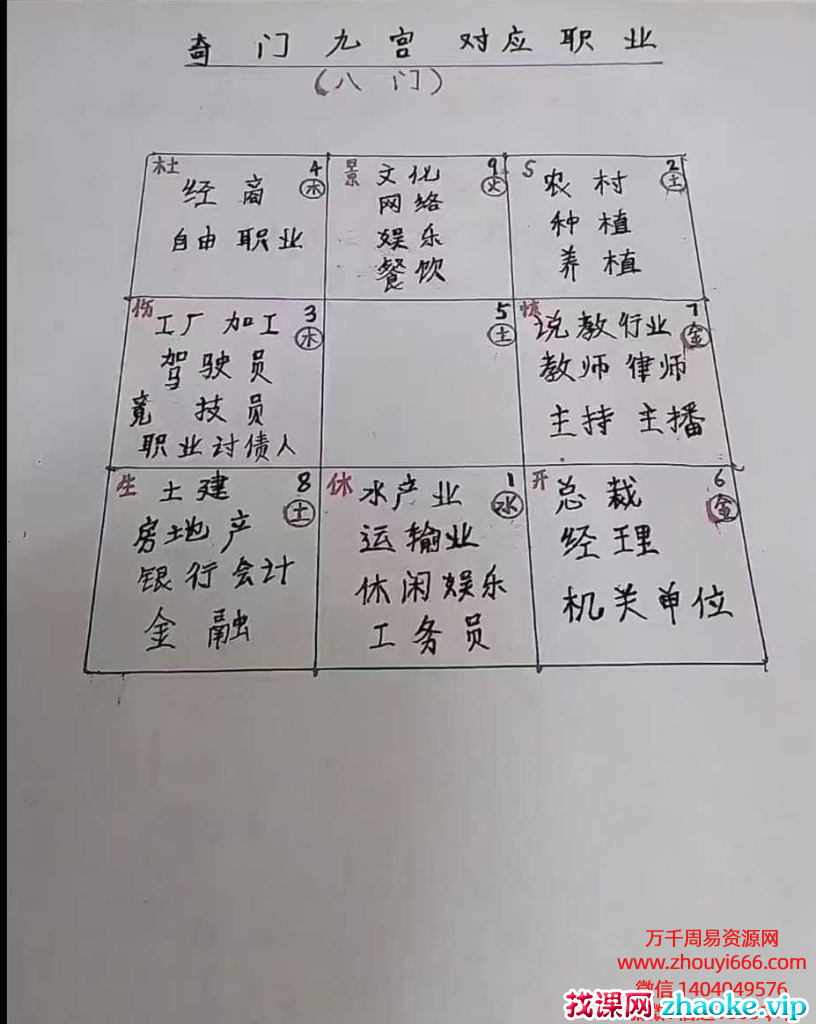 奇门九宫对应职业
(八门)
杜 4
经商 木
自由职业
景 文化 9
网络 火
娱乐
餐饮
S 农村 2
种植 土
养植
伤 工厂加工 3
驾驶员 木
竟技员
职业讨债人
5
土
惊 说教行业 7
教师 律师 金
主持 主播
生 土建 8
房地产 土
银行会计
金融
休 水产业 1
运输业 水
休闲娱乐
工务员
开 总裁 6
经理 金
机关单位
万千周易资源网
www.zhouyi666.com
微信 1404049576
找课网 zhaoke.vip